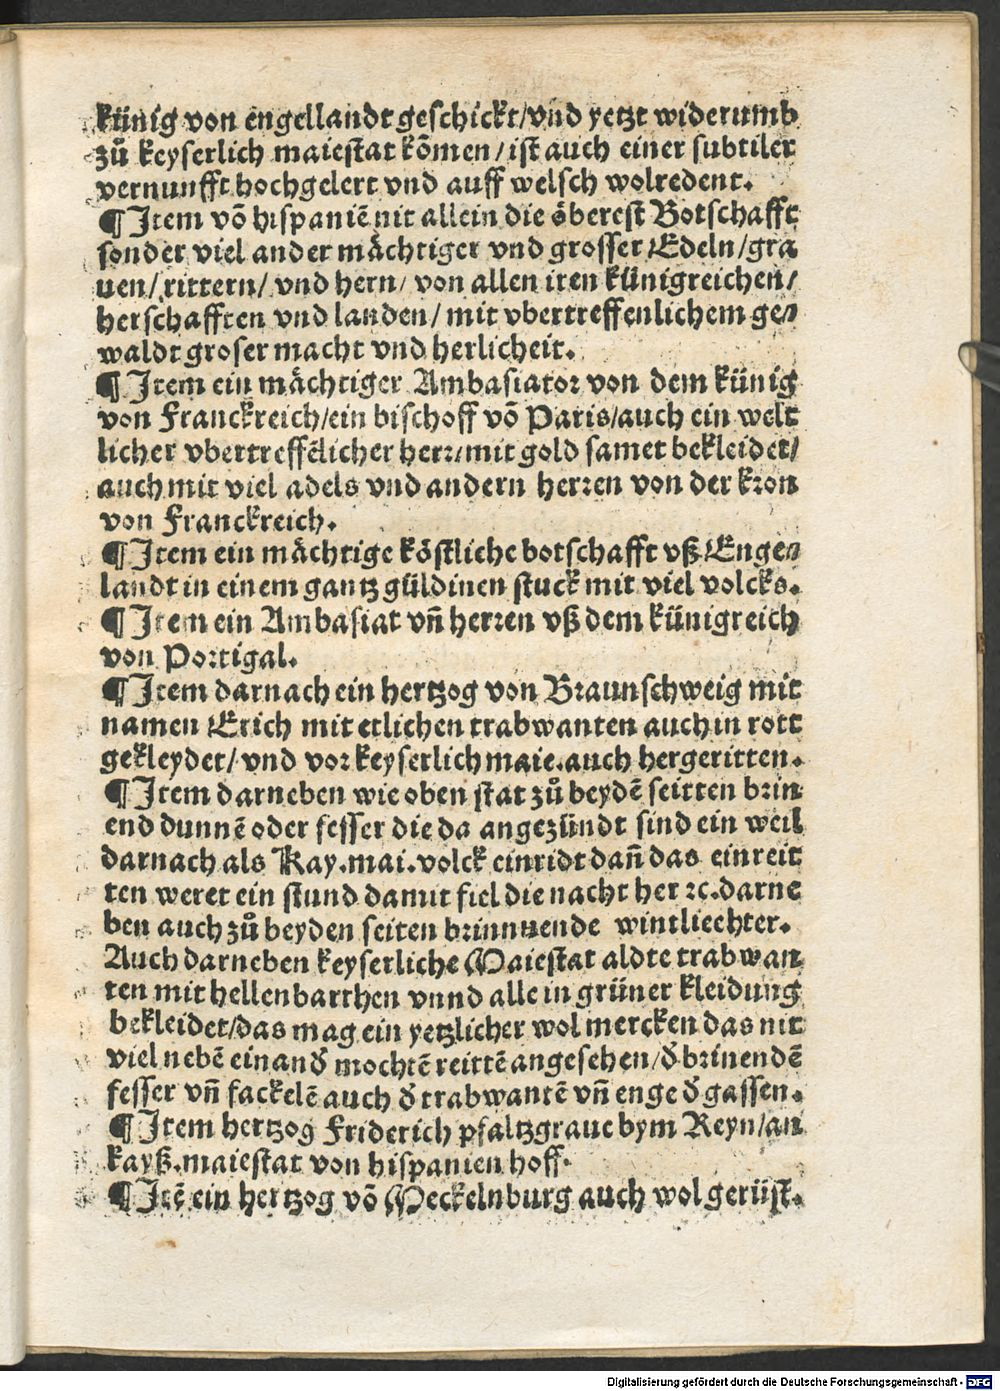 künig von engellandt geschickt/vnd yetzt widerumb
zů keyserlich maiestat kõmen/ist auch einer subtiler
vernunfft hochgelert vnd auff welsch wolredent.
¶Item võ hispaniẽ nit allein die öberest Botschafft
sonder viel ander mächtiger vnd grosser Edeln/gra
uen/rittern/ vnd hern/ von allen iren künigreichen/
herschafften vnd landen/ mit vbertreffenlichem ge⸗
waldt groser macht vnd herlicheit.
¶Item ein mächtiger Ambasiator von dem künig
von Franckreich/ein bischoff võ Paris/auch ein welt
licher vbertreffẽlicher herr/mit gold samet bekleidet/
auch mit viel adels vnd andern herren von der kron
von Franckreich.
¶Item ein mächtige köstliche botschafft vß Enge⸗
landt in einem gantz güldinen stuck mit viel volcks.
¶Item ein Ambasiat vñ herren vß dem künigreich
von Portigal.
¶Item darnach ein hertzog von Braunschweig mit
namen Erich mit etlichen trabwanten auch in rott
gekleydet/ vnd vor keyserlich maie.auch hergeritten.
¶Item darneben wie oben stat zů beydẽ seitten brin
end dunnẽ oder fesser die da angezündt sind ein weil
darnach als Kay.mai.volck einridt dañ das einreit
ten weret ein stund damit fiel die nacht her ꝛc.darne
ben auch zů beyden seiten brinnnende wintliechter.
Auch darneben keyserliche Maiestat aldte trabwan
ten mit hellenbarthen vnnd alle in grüner kleidung
bekleidet/das mag ein yetzlicher wol mercken das nit
viel nebẽ einand̕ mochtẽ reittẽ angesehen/d̕ brinendẽ
fesser vñ fackelẽ auch d̕ trabwantẽ vñ enge d̕ gassen.
¶Item hertzog Friderich pfaltzgraue bym Reyn/an
kayß.maiestat von hispanien hoff.
¶Itẽ ein hertzog võ Meckelnburg auch wol gerüst.
Digitalisierung gefördert durch die Deutsche Forschungsgemeinschaft - DFG